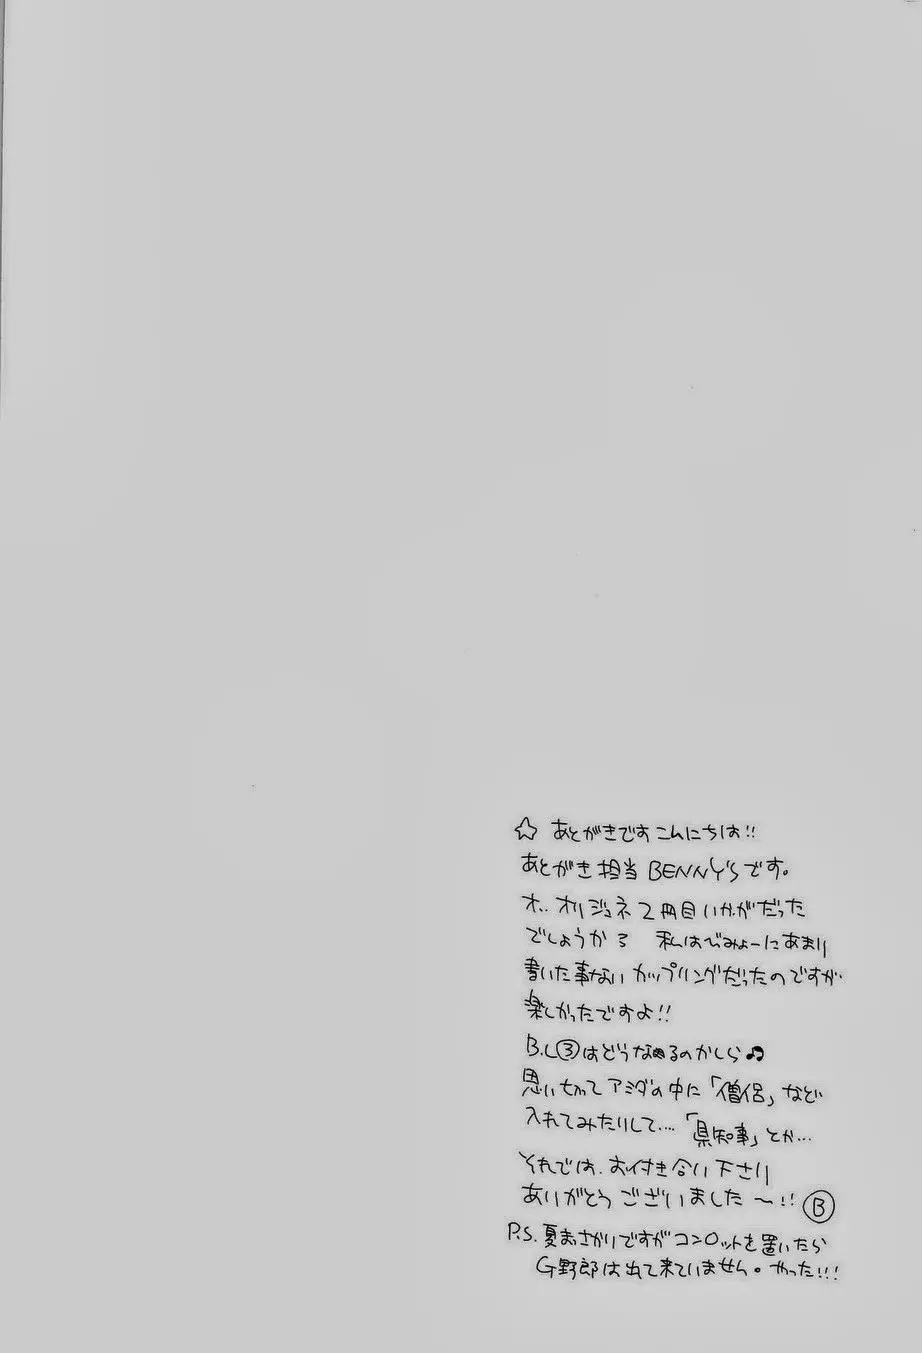 ☆ あとがきです こんにちは!!
あとがき担当 BENNY'Sです。
オ.. オリジュネ 2冊目いかがだった
でしょうか? 私はびみょーにあまり
書いた事ないカップリングだったのですが
楽しかったですよ!!
B.L③はどうなるのかしら♫
思い切ってアミダの中に「僧侶」など
入れてみたりして….「県知事」とか…
それでは、お付き合い下さり
ありがとうございました〜!! Ⓑ
P.S. 夏まっさかりですがコンロットを置いたら
G野郎は出て来ていません。やった!!!